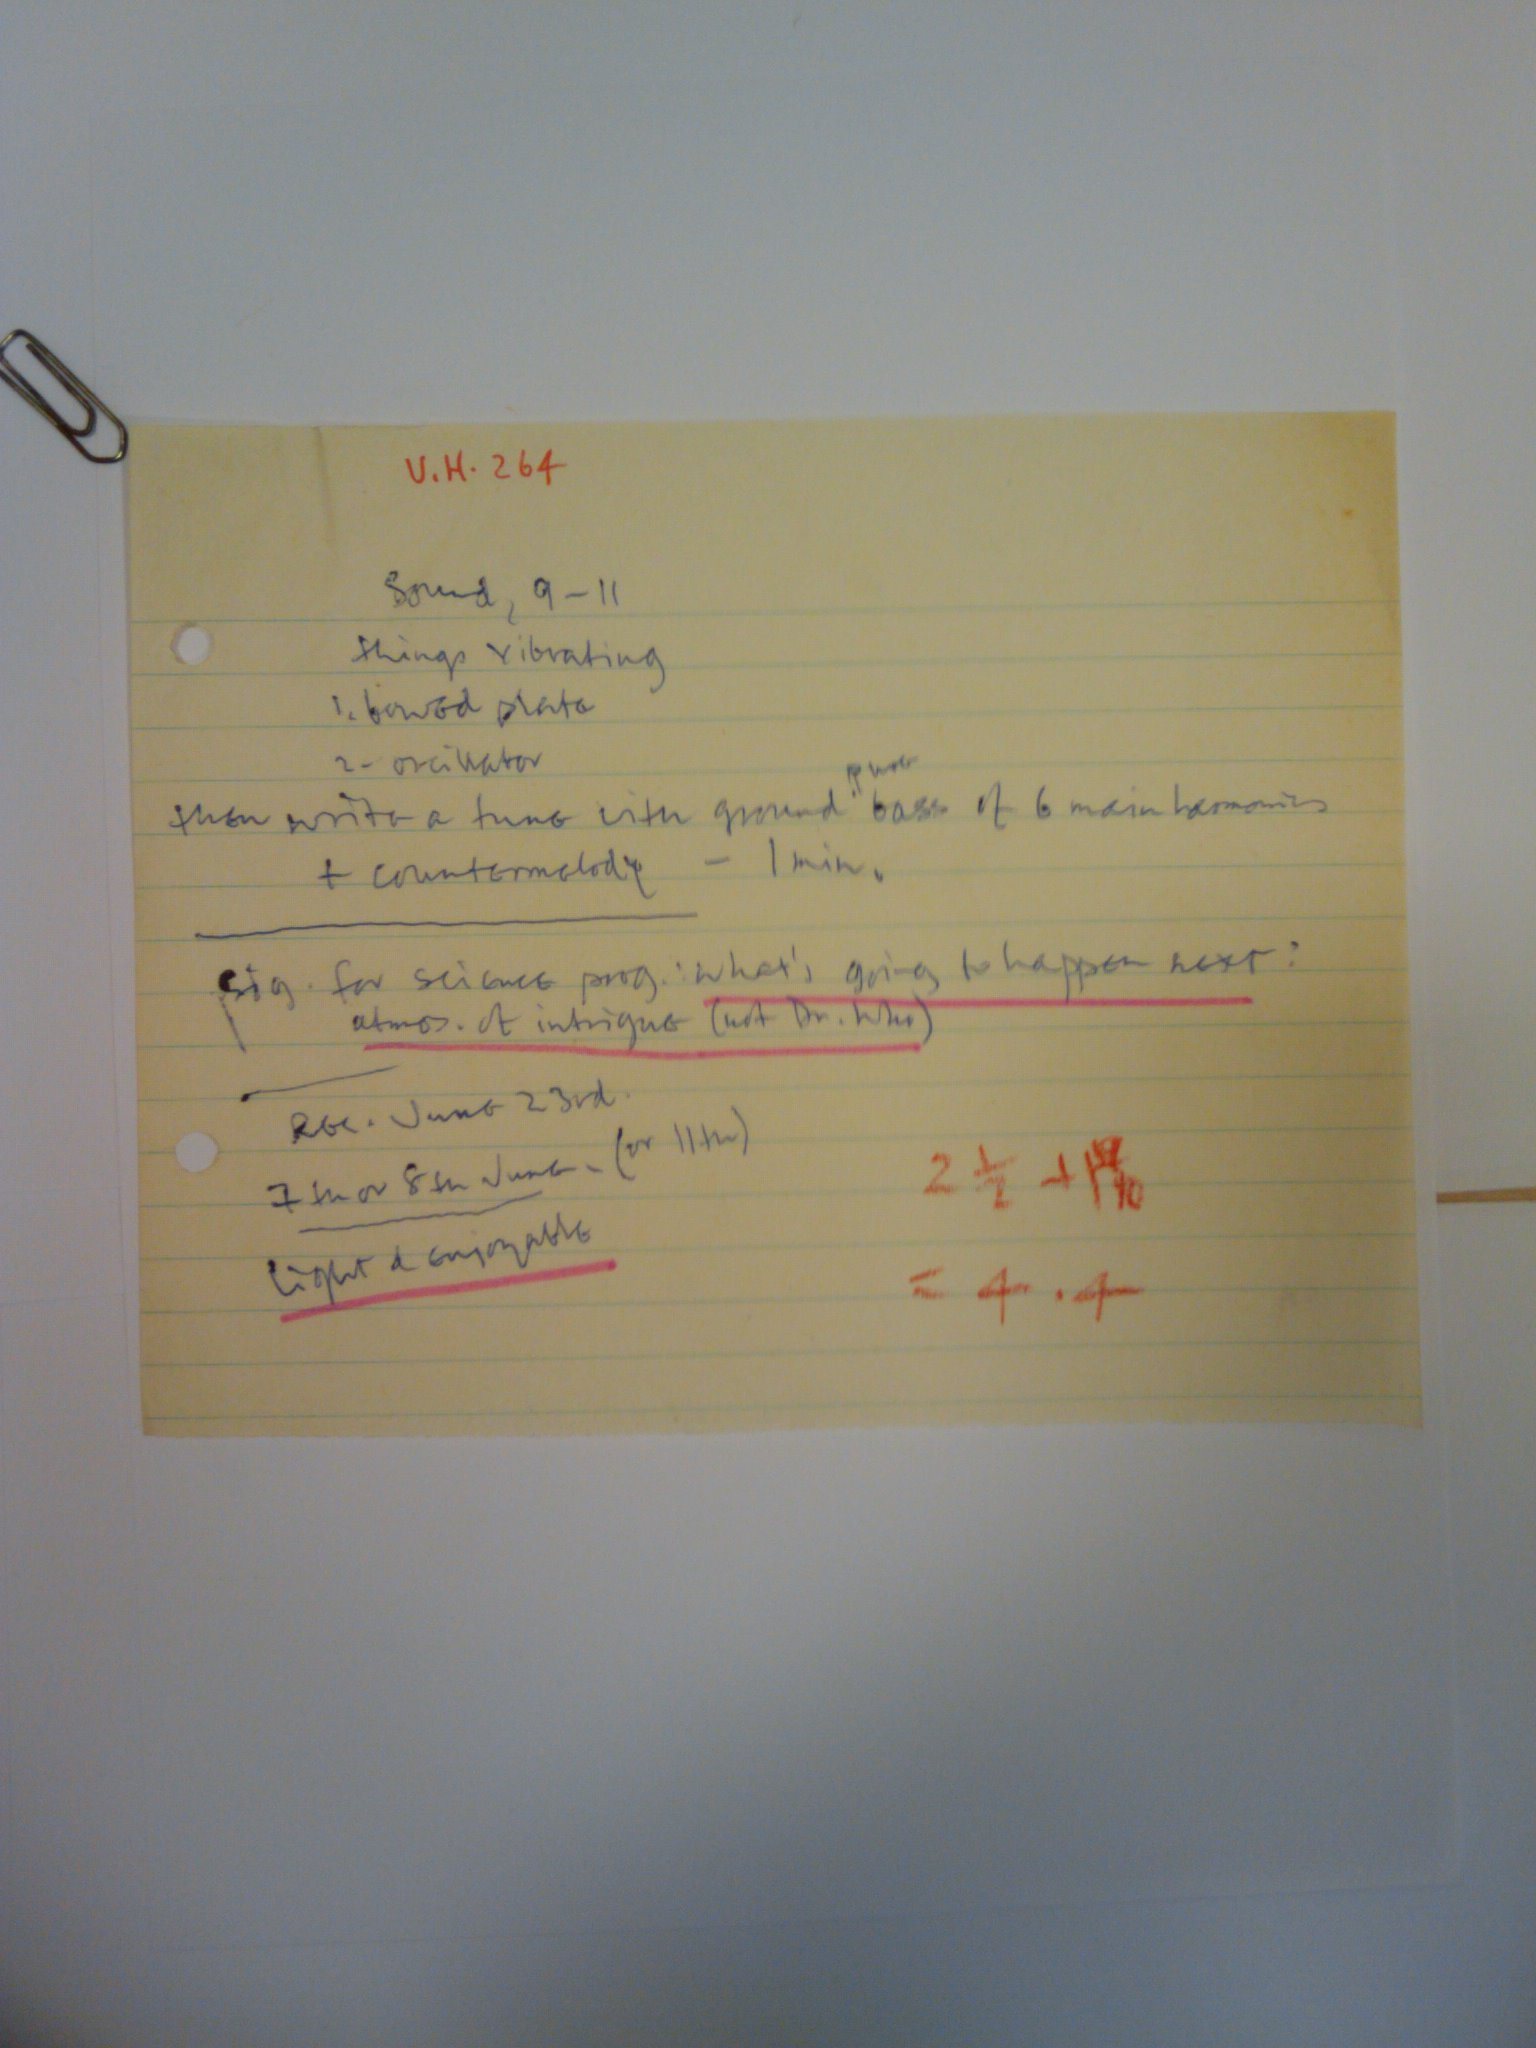 V.H. 264
Sound, 9-11
things vibrating
1. bowed plate
2- oscillator
pure
then write a tune with ground bass of 6 main harmonics
+ countermelody - 1 min.
sig. for science prog.: what's going to happen next?
atmos. of intrigue (not Dr. Who)
Rec. June 23rd.
7th or 8th June - (or 11th)
light & enjoyable
2 1/2 + 1 9/10
= 4.4